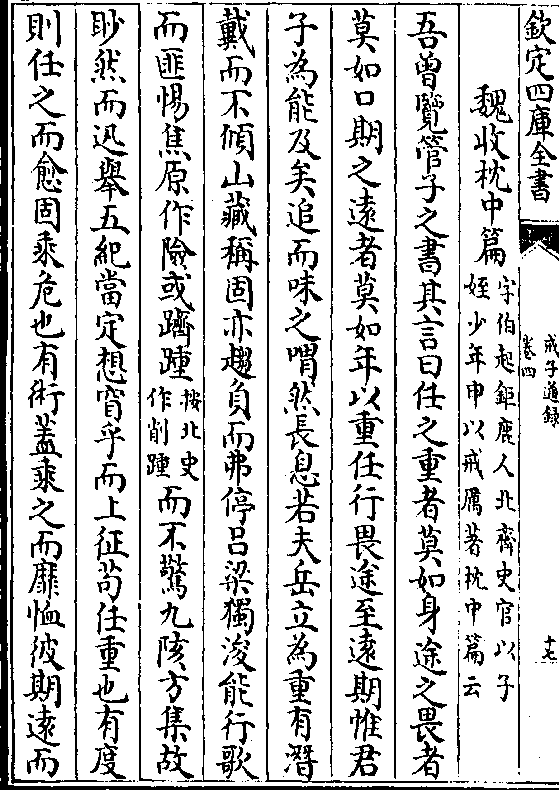 欽定四庫全書
戒子通録
卷四
十七
魏收枕中篇
字伯起鉅鹿人北齊史官以子
姪少年申以戒厲著枕中篇云
吾曾覽管子之書其言曰任之重者莫如身途之畏者
莫如口期之遠者莫如年以重任行畏途至遠期惟君
子為能及矣追而味之喟然長息若夫岳立為重有潛
戴而不傾山藏稱固亦趨負而弗停呂梁獨浚能行歌
而匪惕焦原作險或躋踵按北史作削踵而不驚九陔方集故
眇然而迅舉五紀當定想窅乎而上征苟任重也有度
則任之而愈固乘危也有術蓋乘之而靡恤彼期遠而